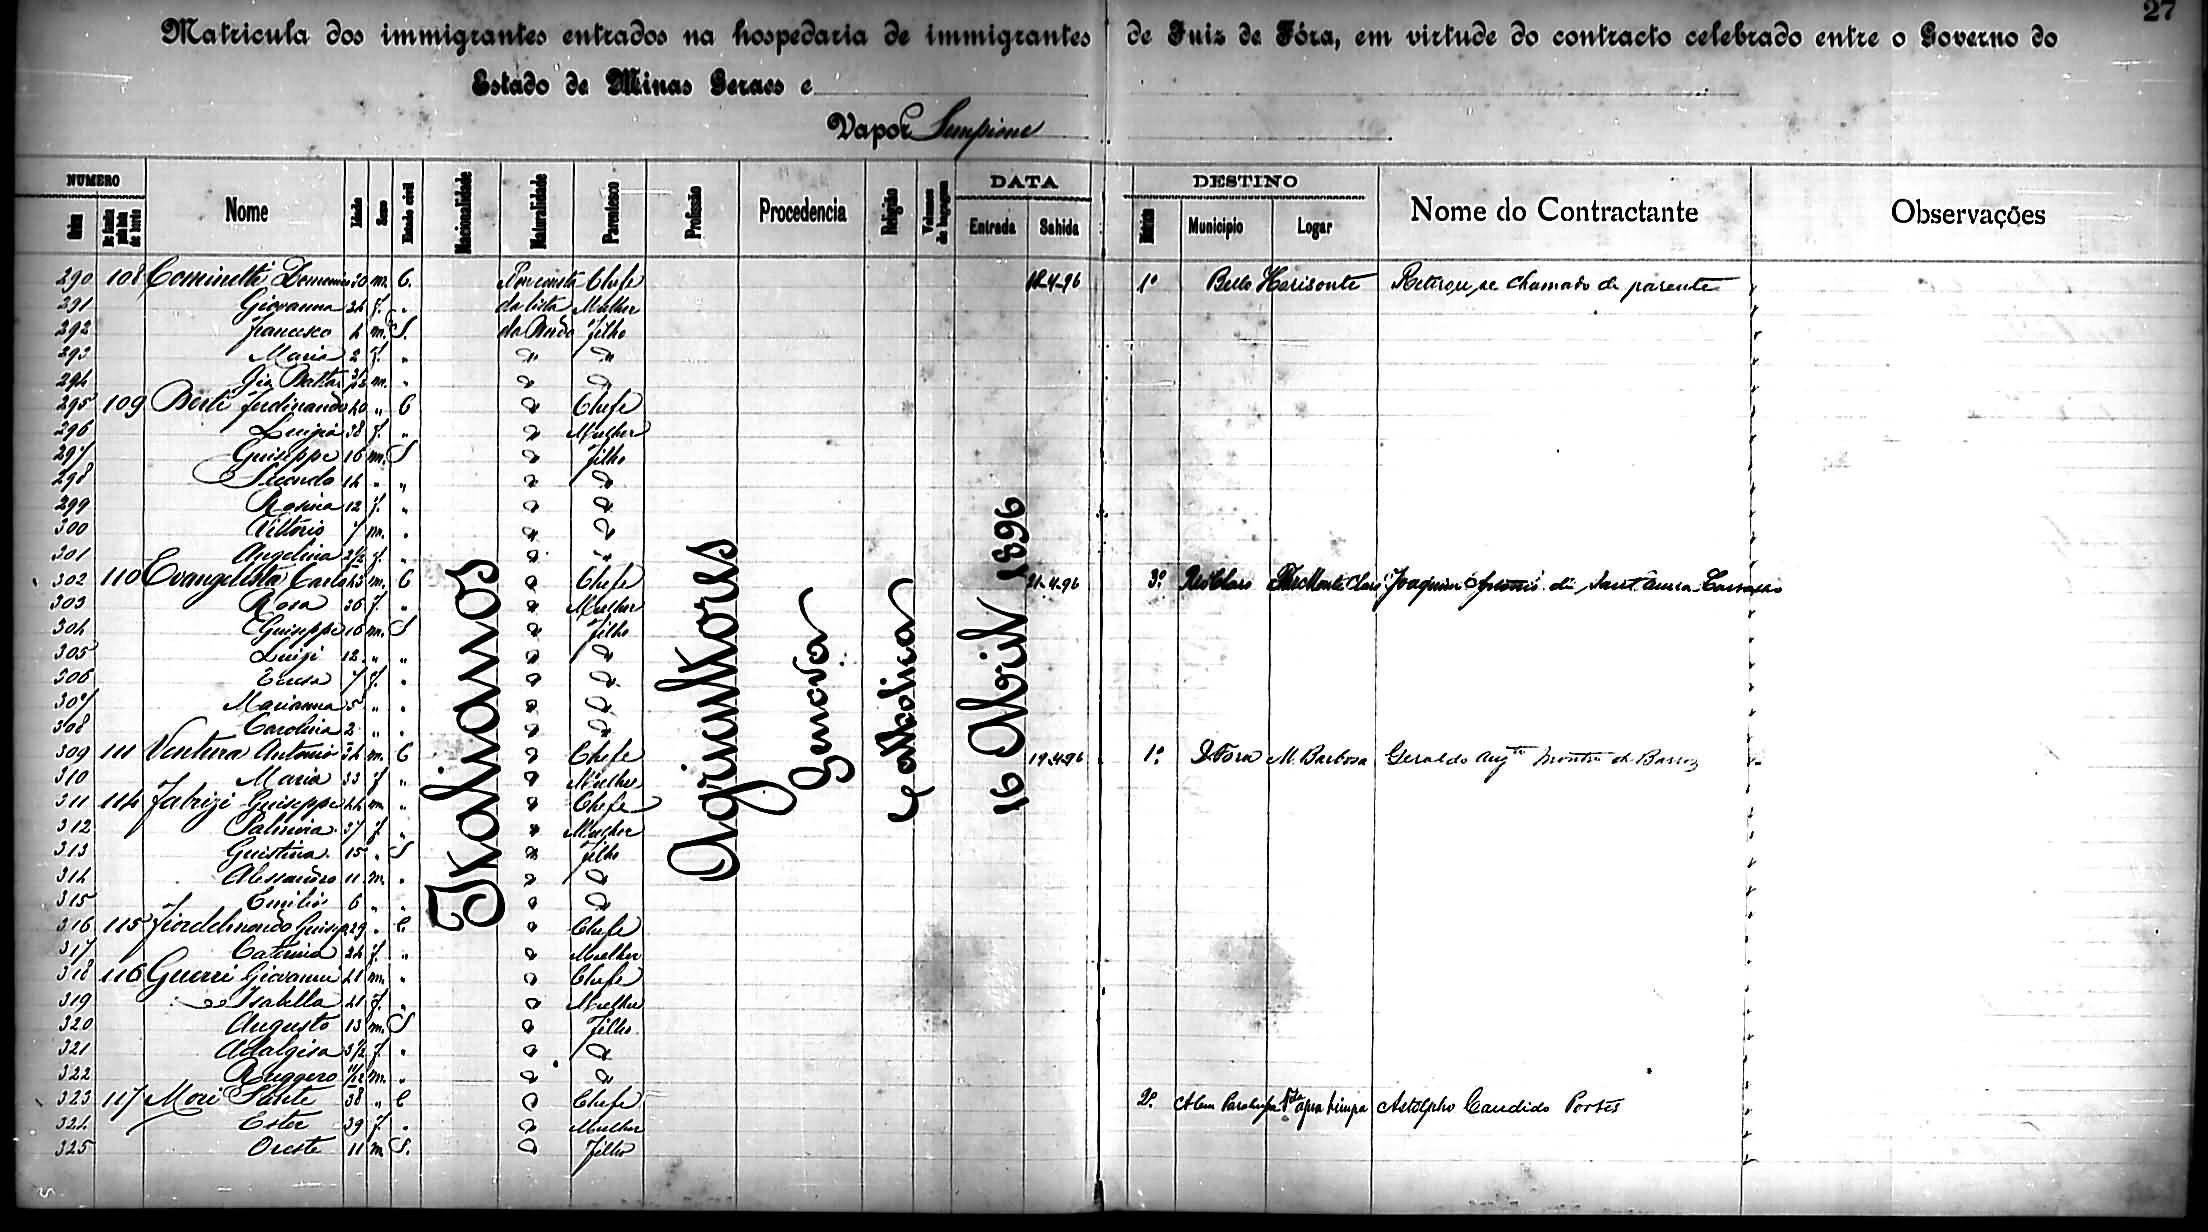 27
Matricula dos immigrantes entrados na hospedaria de immigrantes de Juiz de Fóra, em virtude do contracto celebrado entre o Governo do
Estado de Minas Geraes e
Vapor Sempione
NUMERO Nome Idade Sexo Estado civil Nacionalidade Naturalidade Parentesco Profissão Procedencia Religião Volumes de bagagem DATA DESTINO Nome do Contractante Observações
Entrada Sahida Municipio Logar
Italianos
Agricultores
Genova
Catholica
16 Abril 1896
290 108 Cominelli 30 m. C. Chefe 18-4-96 1º Bello Horisonte Retirou-se chamado de parente
291 Giovanna 24 f. " da lista Mulher
292 Francesco 4 m. S. Filho
293 Maria 2 f. " " "
294 m. " " "
295 109 Berti Ferdinando 40 " C " Chefe
296 Luigia 38 f. " " Mulher
297 Guiseppe 16 m. S " Filho
298 Secondo 14 " " " "
299 Rosina 12 f. " " "
300 Vittorio 7 m. " " "
301 Angelina 2 1/2 f. " " "
302 110 Evangelista Carlo 43 m. C " Chefe 21-4-96 3º Rio Claro Joaquim Antonio de Sant'Anna
303 Rosa 36 f. " " Mulher
304 Guiseppe 16 m. S " Filho
305 Luigi 12 " " " "
306 Teresa 7 f. " " "
307 Marianna 5 " " " "
308 Carolina 2 " " " "
309 111 Ventura Antonio 34 m. C " Chefe 19-4-96 1º J. Fora M. Barbosa Geraldo Augto de Barros
310 Maria 33 f " " Mulher
311 114 Fabrizi Guiseppe 44 m " " Chefe
312 Palmira 37 f " " Mulher
313 Guistina 15 " S " Filho
314 Alessandro 11 m. " " "
315 Emilio 6 " " " "
316 115 Fiordelmondo 29 " C " Chefe
317 Caterina 24 f. " " Mulher
318 116 Guerri Giovanni 41 m. " " Chefe
319 Isabella 41 f. " " Mulher
320 Augusto 13 m. S " Filho
321 Adalgisa 3 1/2 f. " " "
322 Ruggero 11/12 m. " " "
323 117 Mori Sante 38 " C " Chefe 2º Alem Parahyba Astolpho Candido Portes
324 Ester 39 f. " " Mulher
325 Oreste 11 m S. " Filho